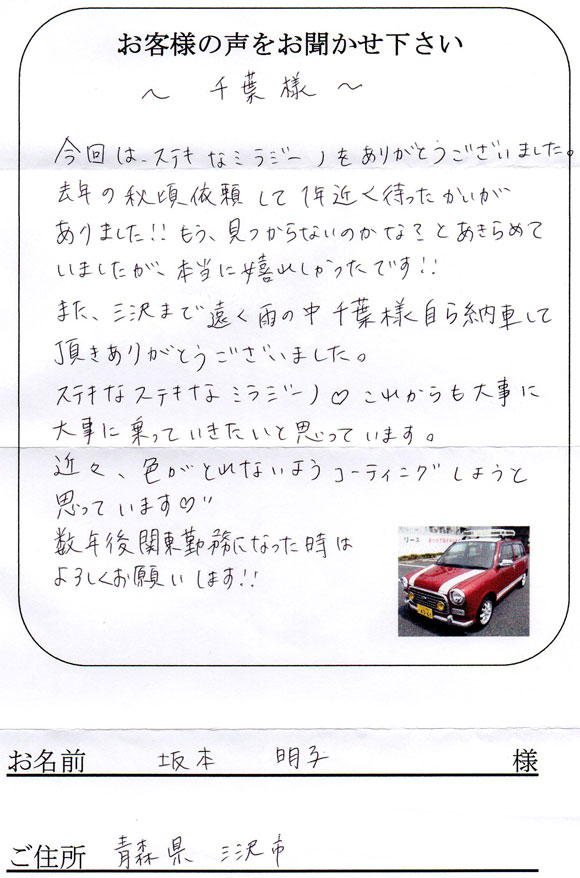 お客様の声をお聞かせ下さい
〜 千葉様 〜
今回は、ステキなミラジーノをありがとうございました。
去年の秋頃依頼して1年近く待ったかいが
ありました!! もう、見つからないのかな?とあきらめて
いましたが、本当に嬉しかったです!!
また、三沢まで遠く雨の中千葉様自ら納車して
頂きありがとうございました。
ステキなステキなミラジーノ♡これからも大事に
大事に乗っていきたいと思っています。
近々、色がとれないようコーティングしようと
思っています♡"
数年後関東勤務になった時は
よろしくお願いします!!
リース
お名前 坂本 明子 様
ご住所 青森県 三沢市